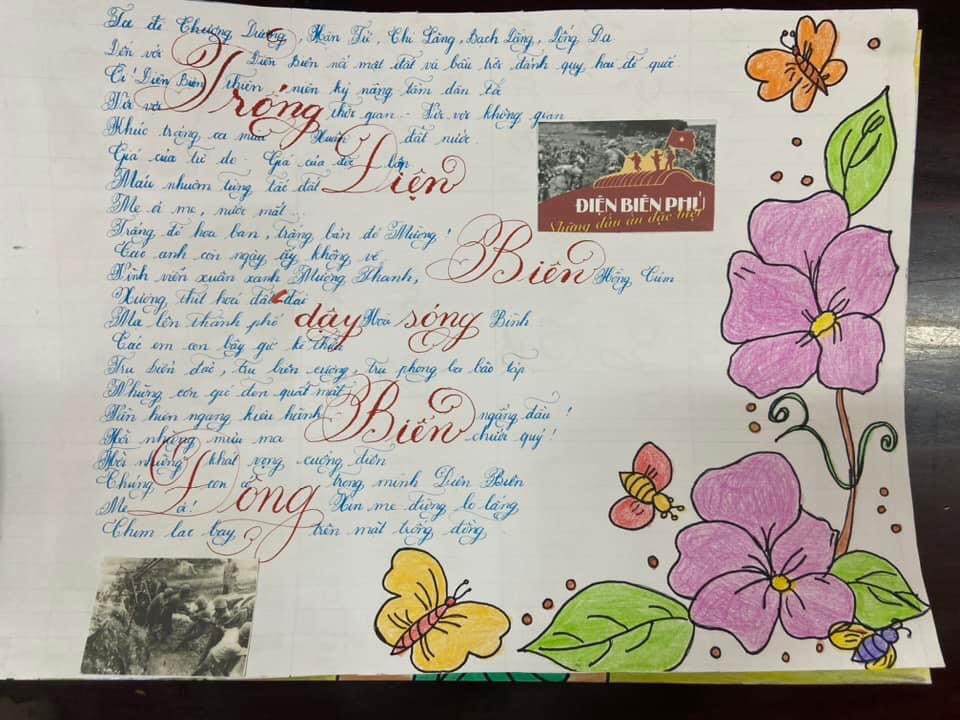 Ta đi Chương Dương, Hàm Tử, Chi Lăng, Bạch Đằng, Đống Đa
Đến với Điện Biên nổi mặt đất và bầu trời đánh quỵ hai đế quốc
Ơi! Điện Biên thiên niên kỷ nặng tâm dân tộc
Vời vợi Trống thời gian - Vời vợi không gian
Khúc tráng ca mùa Xuân đất nước
Giá của tự do - Giá của độc lập
Máu nhuộm từng tấc đất Điện
Mẹ ơi mẹ, nước mắt...
Trắng để hoa ban, trắng bản đồ Mường!
Các anh con ngày ấy không về
Vĩnh viễn xuân xanh Mường Thanh, Biên Hồng Cúm
Xương thịt hoá đất đai
Mọc lên thành phố dậy Hoà sóng Bình
Các em con bây giờ kế thừa
Trụ biển đảo, trụ biên cương, trụ phong ba bão táp
Những cơn gió đen quất mặt
Vẫn hiên ngang kiêu hãnh Biển ngẩng đầu!
Hỡi những mưu ma chước quỷ!
Hỡi những khát vọng cuồng điên
Chúng con có trong mình Điện Biên
Mẹ Đồng ạ! Xin mẹ đừng lo lắng
Chim lạc bay trên mặt trống đồng
ĐIỆN BIÊN PHỦ
Những dấu ấn đặc biệt